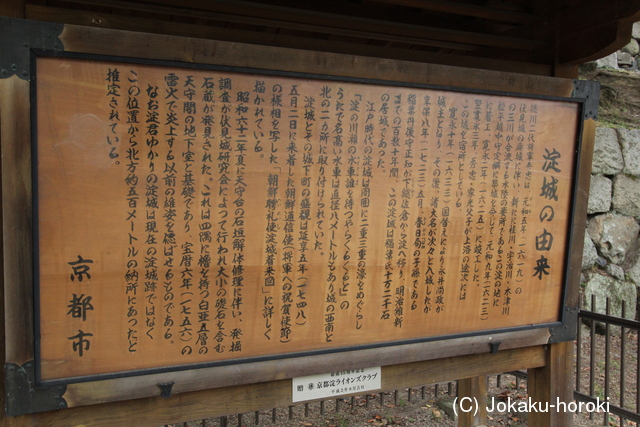 淀城の由来
徳川二代将軍秀忠は、元和五年(一六一九)の
伏見城の廃城に伴い、新たに桂川・宇治川・木津川
の三川が合流する水陸の要所であるこの淀の地に
松平越中守定綱に築城を命じて、元和九年(一六二三)
に着工、寛永二年(一六二五)に竣工した。
翌寛永三年、秀忠、家光父子が上洛の途次には
この城を宿所としている。
寛永十年(一六三三)国替えにより永井尚政が
城主となり、その後、諸大名が次々と入城したが
享保八年(一七二三)五月、春日局の子孫である
稲葉丹後守正知が下総佐倉から淀へ移り、明治維新
までの百数十年間、この淀城は稲葉氏十万二千石
の居城であった。
江戸時代の淀城は周囲に二重三重の濠をめぐらし
「淀の川瀬の水車誰を待つやらくるくると」の
うたで名高い水車は直径八メートルもあり城の西南と
北の二ヵ所に取り付けられていた。
淀城とその城下町の偉観は延享五年(一七四八)
五月二日に来着した朝鮮通信使(将軍への祝賀使節)
の様相を写した「朝鮮聘礼使淀城着来図」に詳しく
描かれている。
昭和六十二年夏に天守台の石垣解体修理に伴い、発掘
調査が伏見城研究会によって行われ大小の礎石を含む
石蔵が発見された。これは四隅に櫓を持つ白亜五層の
天守閣の地下室と基礎であり、宝暦六年(一七五六)の
雷火で炎上する以前の雄姿を偲ばせるものである。
なお淀君ゆかりの淀城は現在の淀城跡ではなく
この位置から北方約五百メートルの納所にあったと
推定されている。
京都市
贈 京都淀ライオンズクラブ
(C) Jokaku-horoki